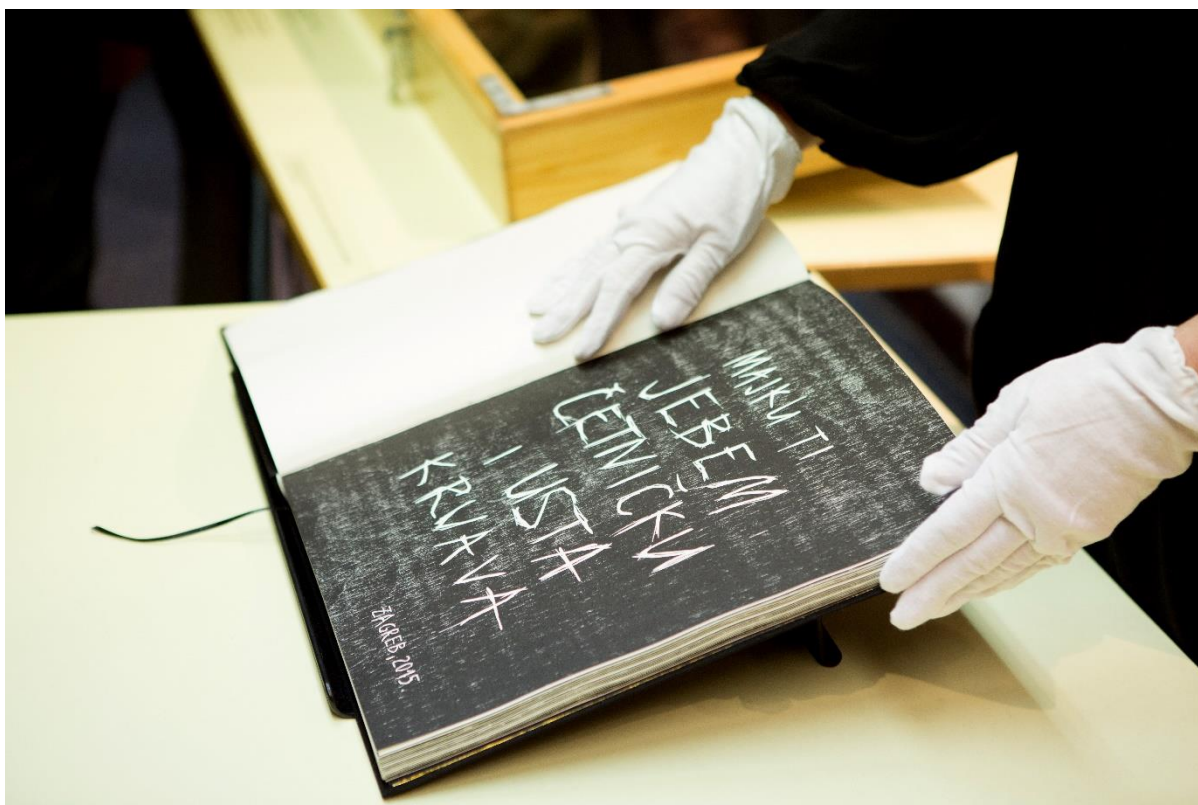 MAJKU TI
JEBEM
ČETNIČKU
I USTA
KRVAVA
ZAGREB, 2015.